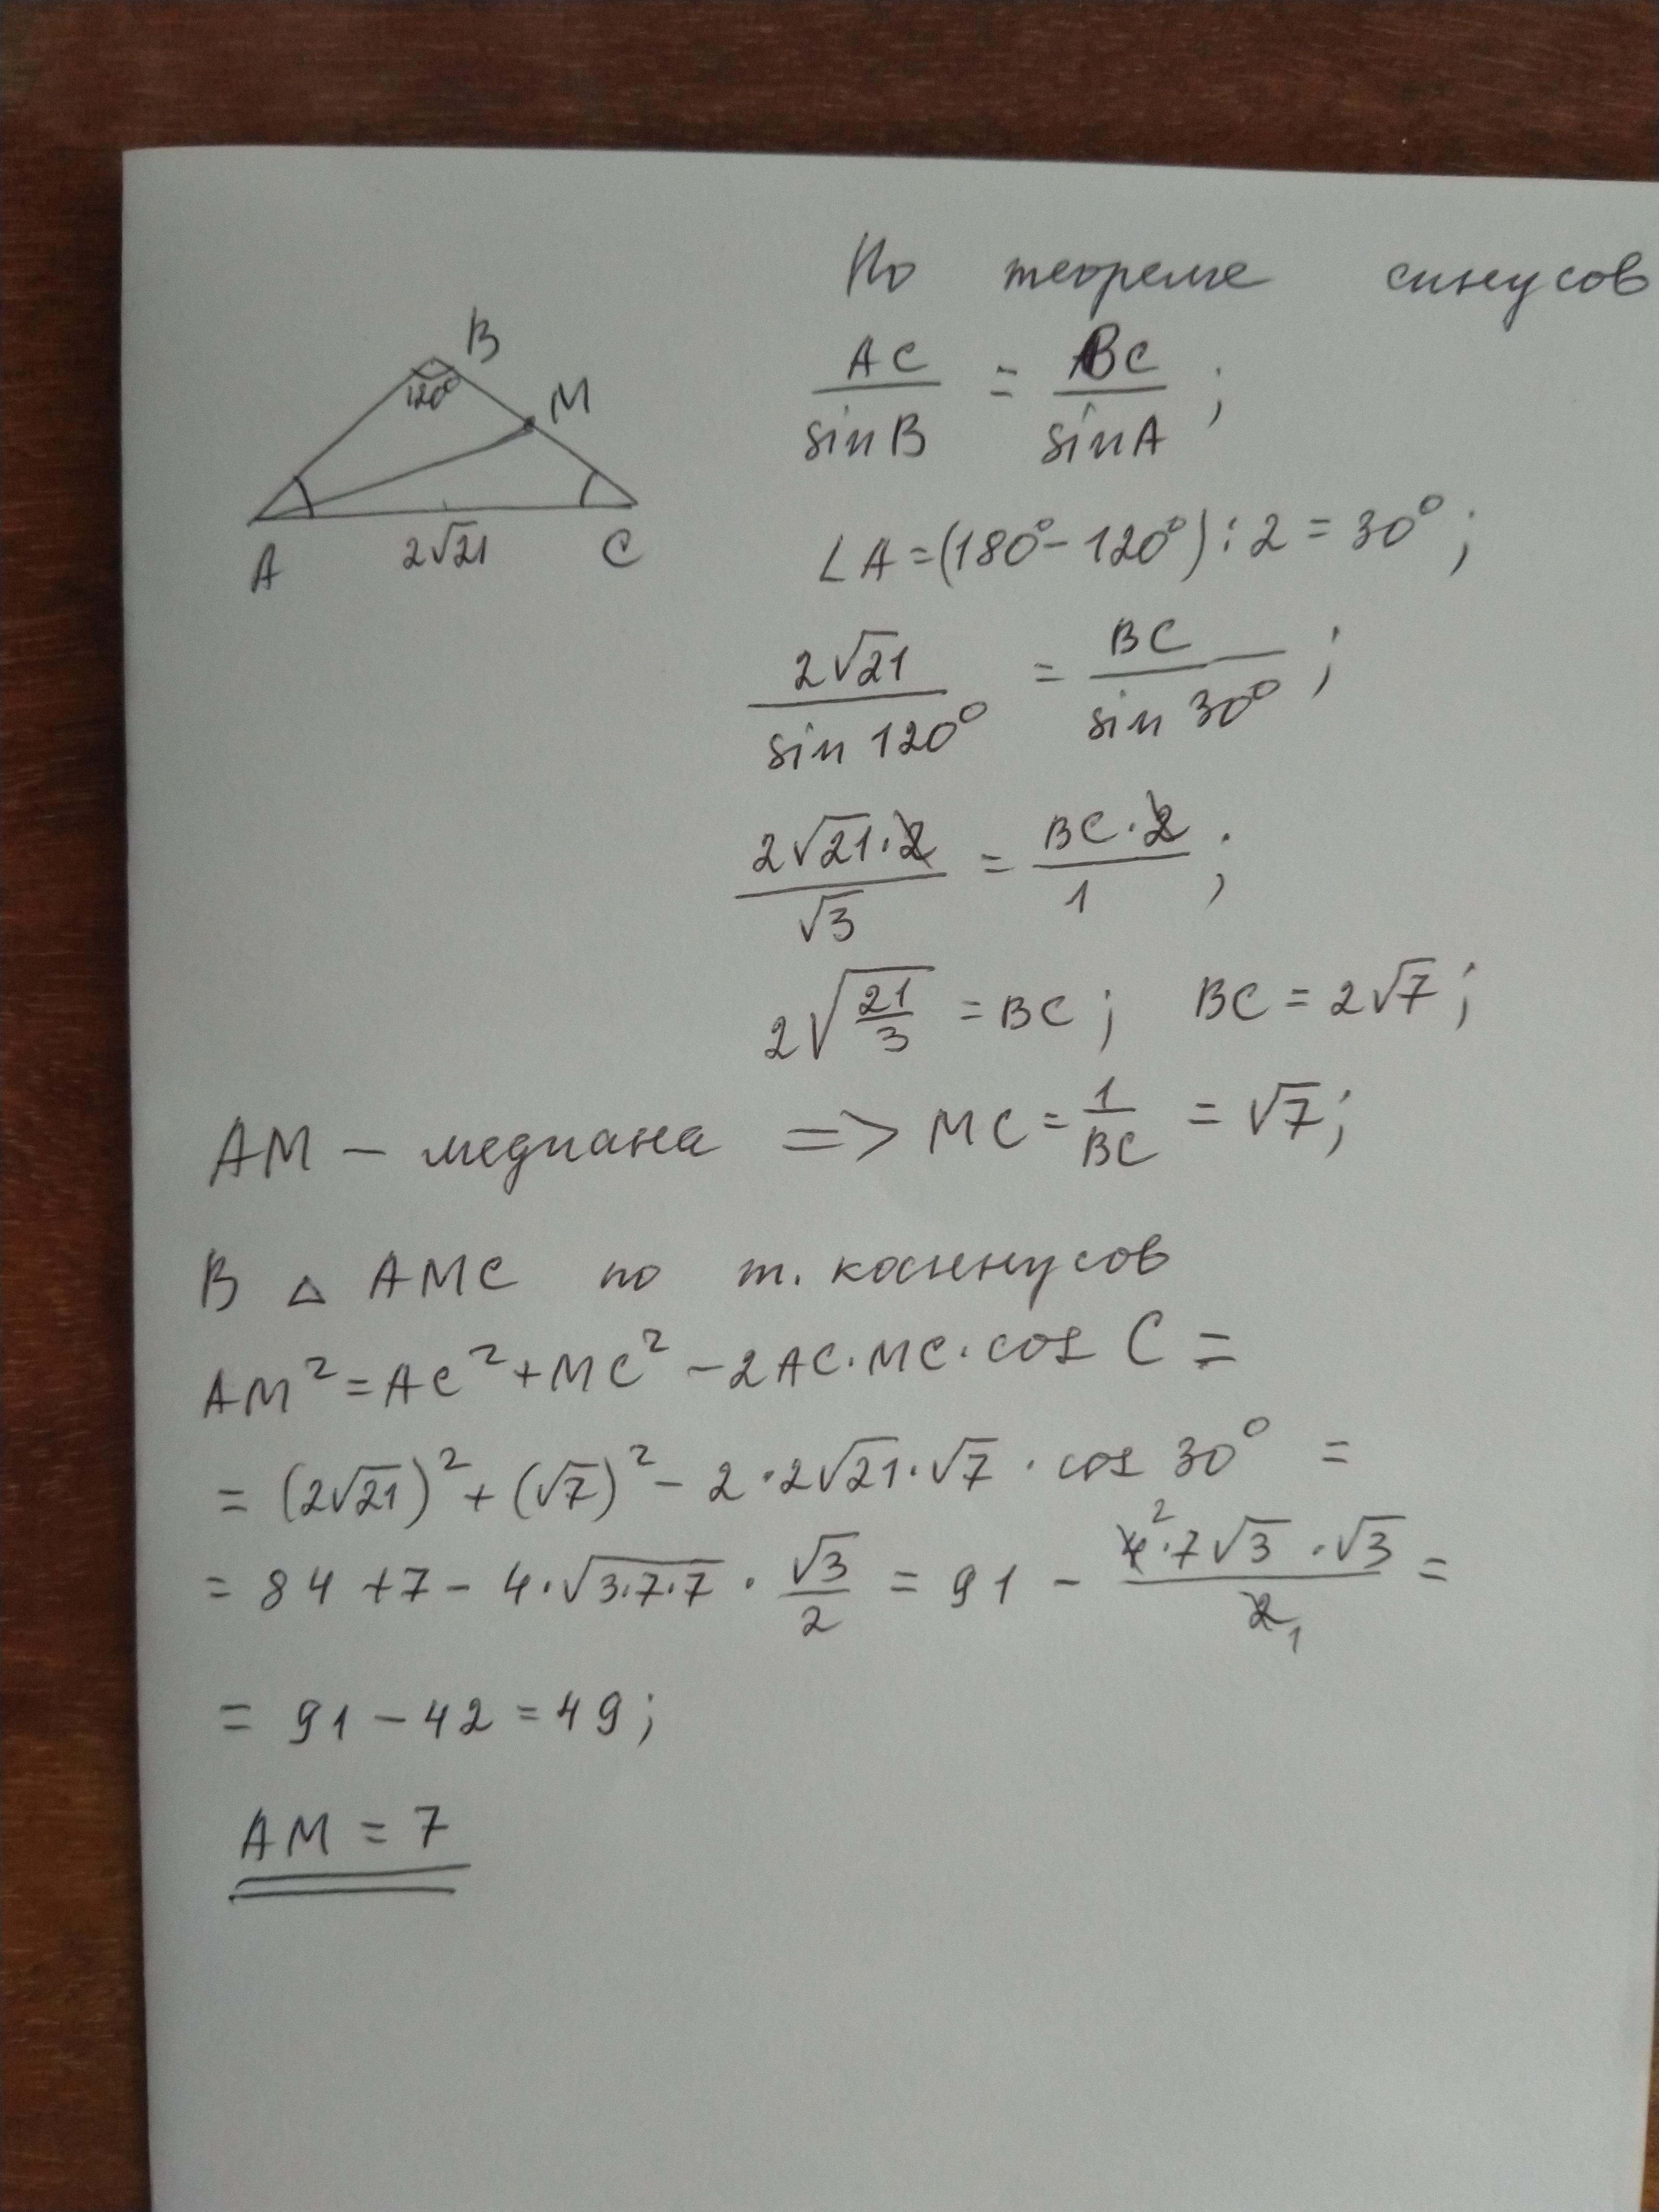 По теореме синусов
B
120°
M
A
2√21
C
AC/sin B = BC/sin A ;
∠A = (180° - 120°) : 2 = 30° ;
2√21/sin 120° = BC/sin 30° ;
2√21·2/√3 = BC·2/1 ;
2√(21/3) = BC ; BC = 2√7 ;
AM – медиана => MC = 1/BC = √7 ;
В △ AMC по т. косинусов
AM² = AC² + MC² - 2AC·MC·cos C =
= (2√21)² + (√7)² - 2·2√21·√7 · cos 30° =
= 84 + 7 - 4·√(3·7·7) · √3/2 = 91 - 4²·7√3·√3/2₁ =
= 91 - 42 = 49 ;
AM = 7